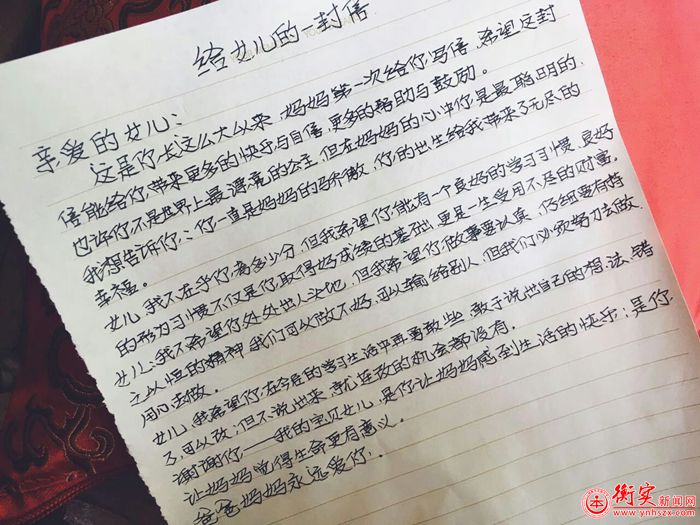 给女儿的一封信
亲爱的女儿:
这是你长这么大以来,妈妈第一次给你写信,希望这封
信能给你带来更多的快乐与自信,更多的帮助与鼓励。
也许你不是世界上最漂亮的公主,但在妈妈的心中你是最聪明的,
我想告诉你:你一直是妈妈的骄傲,你的出生给我带来了无尽的
幸福。
女儿,我不在乎你考多少分,但我希望你能有一个良好的学习习惯,良好
的行为习惯不仅是你取得好成绩的基础,更是一生受用不尽的财富。
女儿:我不希望你处处出人头地,但我希望你做事要认真,仔细要有持
之以恒的精神,我们可以做不好,可以输给别人,但我们必须努力去做,
用心去做。
女儿,我希望你,在今后的学习生活中再勇敢些,敢于说出自己的想法,错
了,可以改,但不说出来,就连改的机会都没有。
谢谢你——我的宝贝女儿,是你让妈妈感到生活的快乐;是你
让妈妈觉得生命更有意义。
爸爸妈妈永远爱你,.
衡实新闻网
www.ynhszx.com